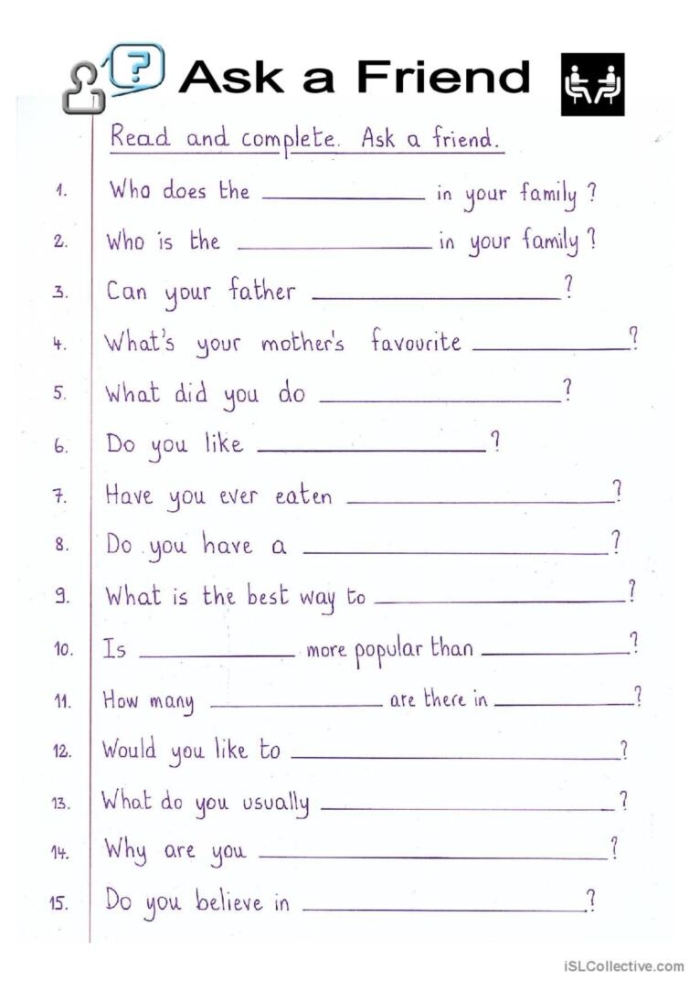 ?
Ask a Friend
Read and complete. Ask a friend.
1. Who does the ____________ in your family?
2. Who is the ____________ in your family?
3. Can your father ____________?
4. What's your mother's favourite ____________?
5. What did you do ____________?
6. Do you like ____________?
7. Have you ever eaten ____________?
8. Do you have a ____________?
9. What is the best way to ____________?
10. Is ____________ more popular than ____________?
11. How many ____________ are there in ____________?
12. Would you like to ____________?
13. What do you usually ____________?
14. Why are you ____________?
15. Do you believe in ____________?
iSLCollective.com